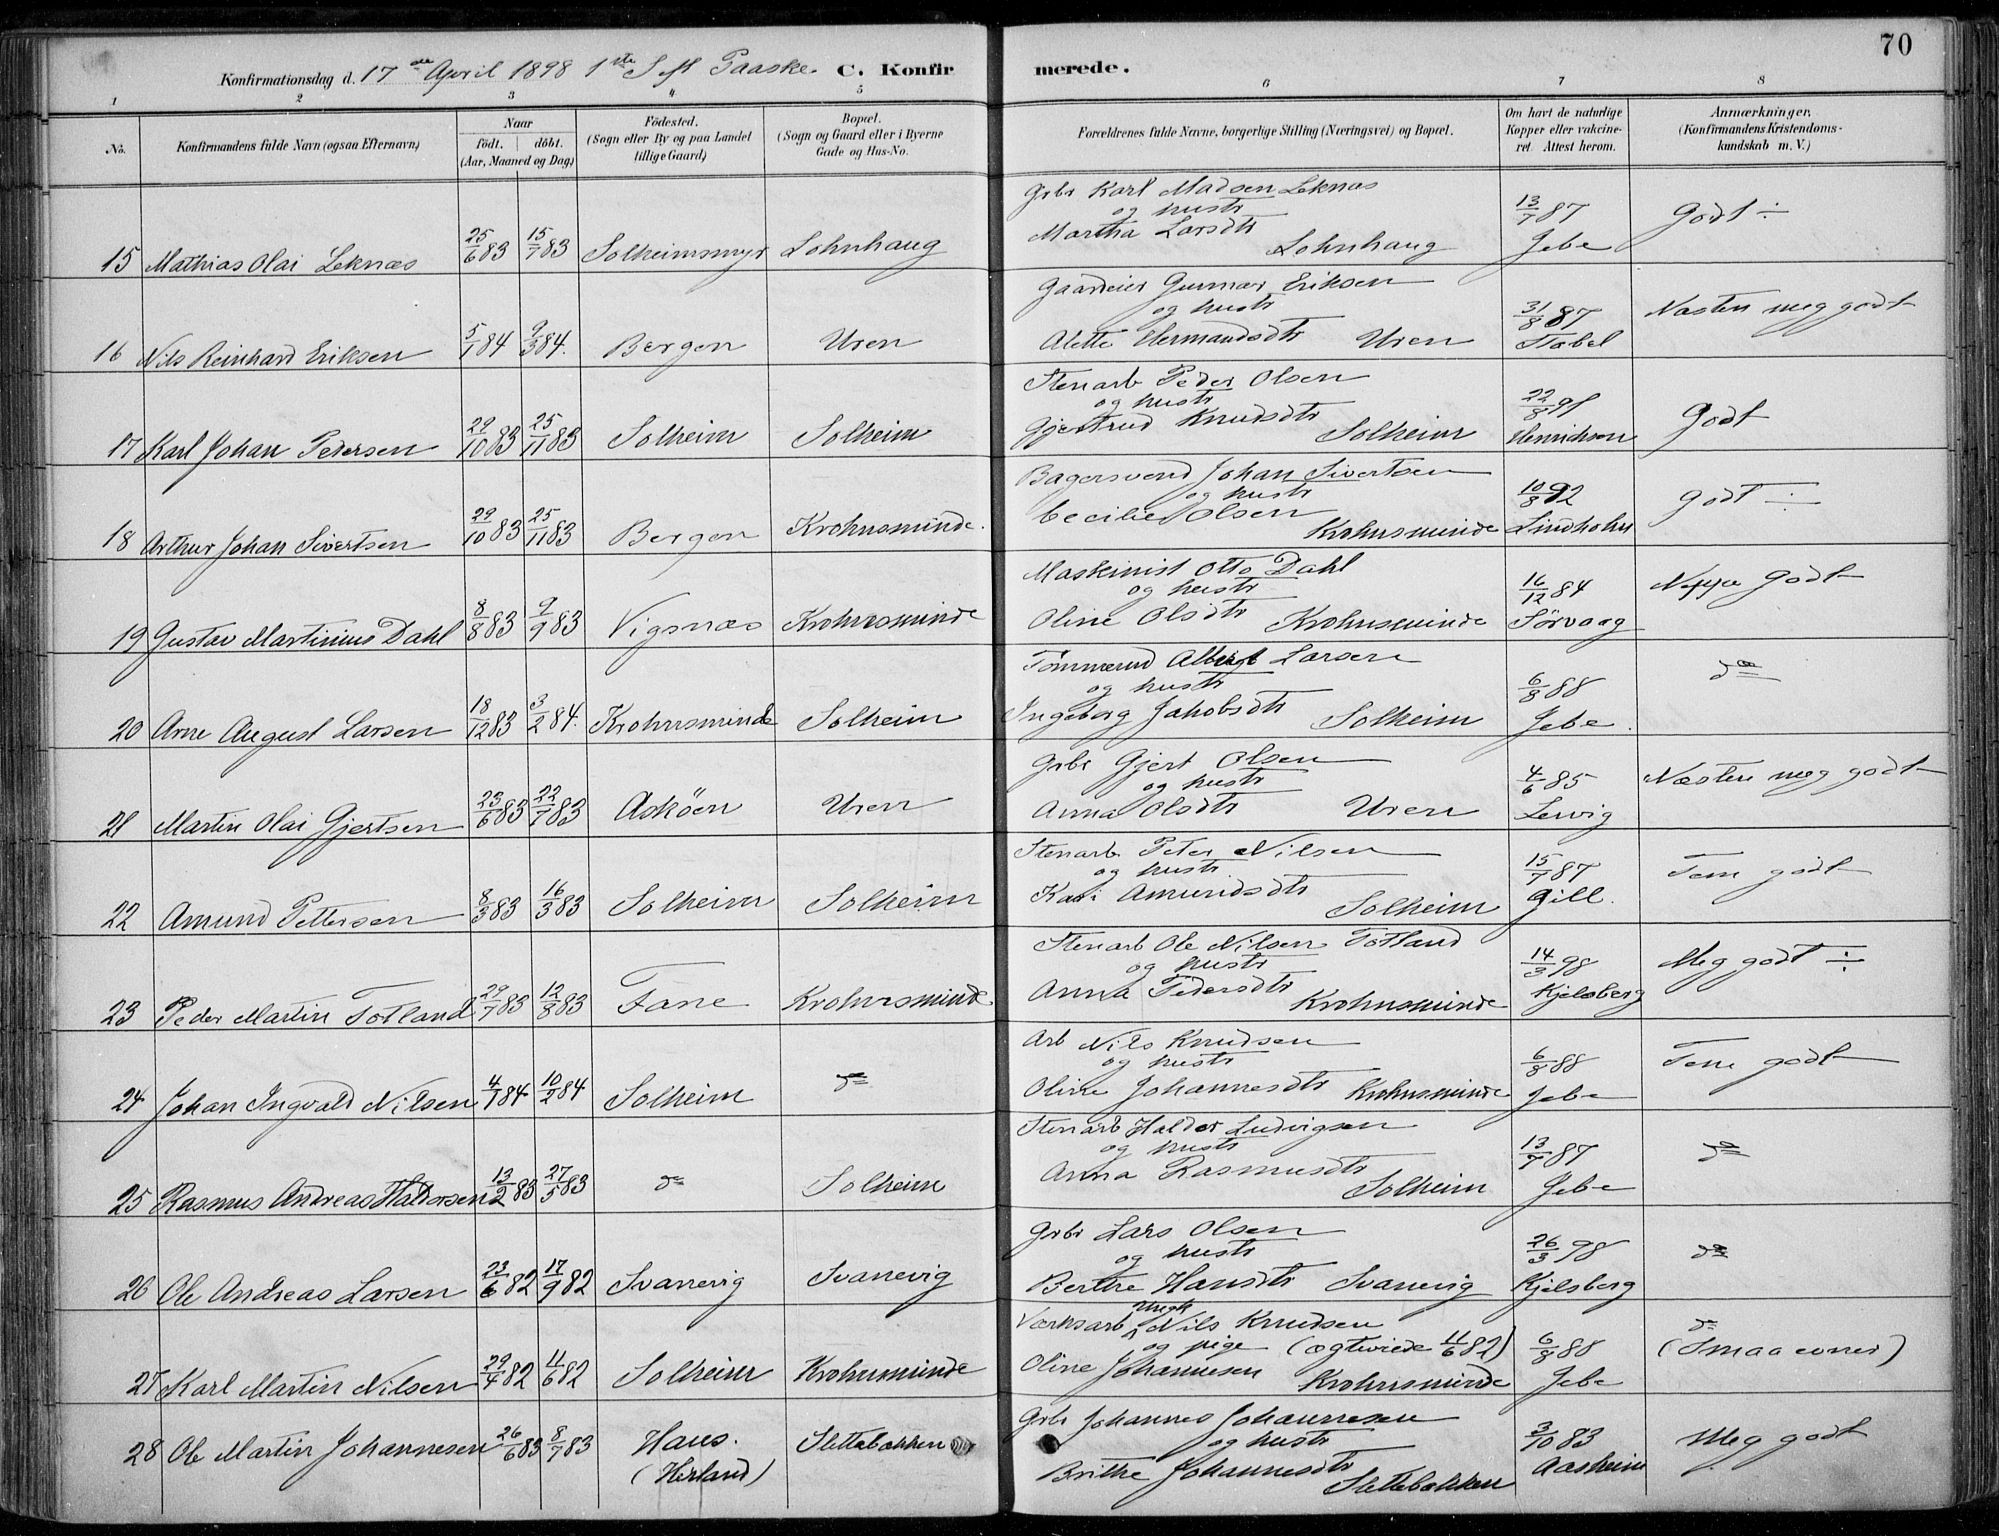 70
Konfirmationsdag d. 17de April 1898 1ste Paaske. C. Konfirmerede.
1 2 3 4 5 6 7 8
No.
Konfirmandens fulde Navn (ogsaa Efternavn)
Naar
født. døbt.
(Aar, Maaned og Dag)
Fødested.
(Sogn eller By og paa Landet
tillige Gaard)
Bopæl.
(Sogn og Gaard eller i Byerne
Gade og Hus-No.
Forældrenes fulde Navne, borgerlige Stilling (Næringsvei) og Bopæl.
Om havt de naturlige
Kopper eller vakcine-
ret. Attest herom.
Anmærkninger.
(Konfirmandens Kristendoms-
kundskab m. V.)
15 Mathias Olai Leknæs 25/6 83 15/7 83 Solheimsmyr Lohnhaug
Grbr Karl Madsen Leknæs
og hustr
Martha Larsdtr Lohnhaug
13/7 87
Jebe
Godt ÷
16 Nils Reinhard Eriksen 5/1 84 9/3 84. Bergen Uren
Gaardeier Gunnar Eriksen
og hustr
Alette Hermandsdtr Uren
31/8 87
Stabel
Næsten meg godt
17 Karl Johan Petersen 29/10 83 25/11 83 Solheim Solheim
Stenarb Peder Olsen
og hustr
Gjertrud Knudsdtr Solheim
22/8 91
Henrichsen
Godt
18 Arthur Johan Sivertsen 29/10 83 25/11 83 Bergen Krohnsminde.
Bagersvend Johan Sivertsen
og hustr
Cecilie Olsen Krohnsminde
10/8 92
Lindholm
Godt ÷
19 Gustav Martinius Dahl 8/8 83 9/9 83 Vigsnæs Krohnsminde
Maskinist Otto Dahl
og hustr
Oline Olsdtr Krohnsminde
16/12 84
Sørvaag
Neppe Godt
20 Arne August Larsen 18/12 83 3/2 84. Krohnsminde Solheim
Tømmermd Albert Larsen
og hustr
Ingeborg Jakobsdtr Solheim
6/8 88
Jebe.
do
21 Martin Olai Gjertsen 23/6 83 22/7 83 Askøen Uren
Grbr Gjert Olsen
og hustr
Anna Olsdtr Uren
4/6 85
Lervig
Næsten meg godt
22 Amund Pettersen 8/3 83 16/3 83 Solheim Solheim
Stenarb Peter Nilsen
og hustr
Kari Amundsdtr Solheim
15/7 87
Gill.
Tem godt
23 Peder Martin Totland 29/7 83 12/8 83 Fane Krohnsminde
Stenarb Ole Nilsen Totland
og hustr
Anna Pedersdtr Krohnsminde
14/3 98
Kjelsberg
Meg godt ÷
24 Johan Ingvald Nilsen 4/1 84 10/2 84 Solheim do
Arb Nils Knudsen
og hustr
Oline Johannesdtr Krohnsminde
6/8 88
Jebe
Tem godt
25 Rasmus Andreas Haldorsen 13/2 83 27/5 83 do Solheim
Stenarb Haldor Ludvigsen
og hustr
Anna Rasmusdtr Solheim
13/7 87
Jebe
do
26 Ole Andreas Larsen 23/6 82 17/9 82 Svanevig Svanevig
Grbr Lars Olsen
og hustr
Berthe Hansdtr Svanevig
26/3 98
Kjelsberg
do
27 Karl Martin Nilsen 29/4 82 11/6 82 Solheim Krohnsminde
Værksarb Ungk Nils Knudsen
og pige (ægteviede 11/6 82)
Oline Johannesen Krohnsminde
6/8 88
Jebe
do
(Smaa evner)
28 Ole Martin Johannesen 26/6 83 8/7 83 Haus.
(Herland) Slettebakken
Grbr Johannes Johannesen
og hustr
Brithe Johannesdtr Slettebakken
3/10 83
Aasheim
Meg godt